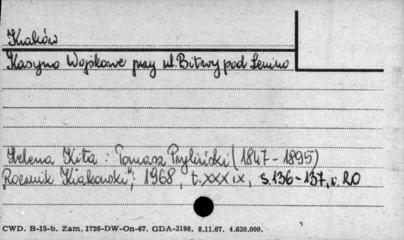 Kraków
Kasyno Wojskowe przy ul. Bitwy pod Lenino
Helena Kita: Tomasz Pryliński (1847-1895)
"Rocznik Krakowski", 1968, t. XXXIX, s. 136-137, r. 20
CWD. B-15-b. Zam. 1726-DW-On-67. GDA-3198. 8.11.67. 4.630.000.